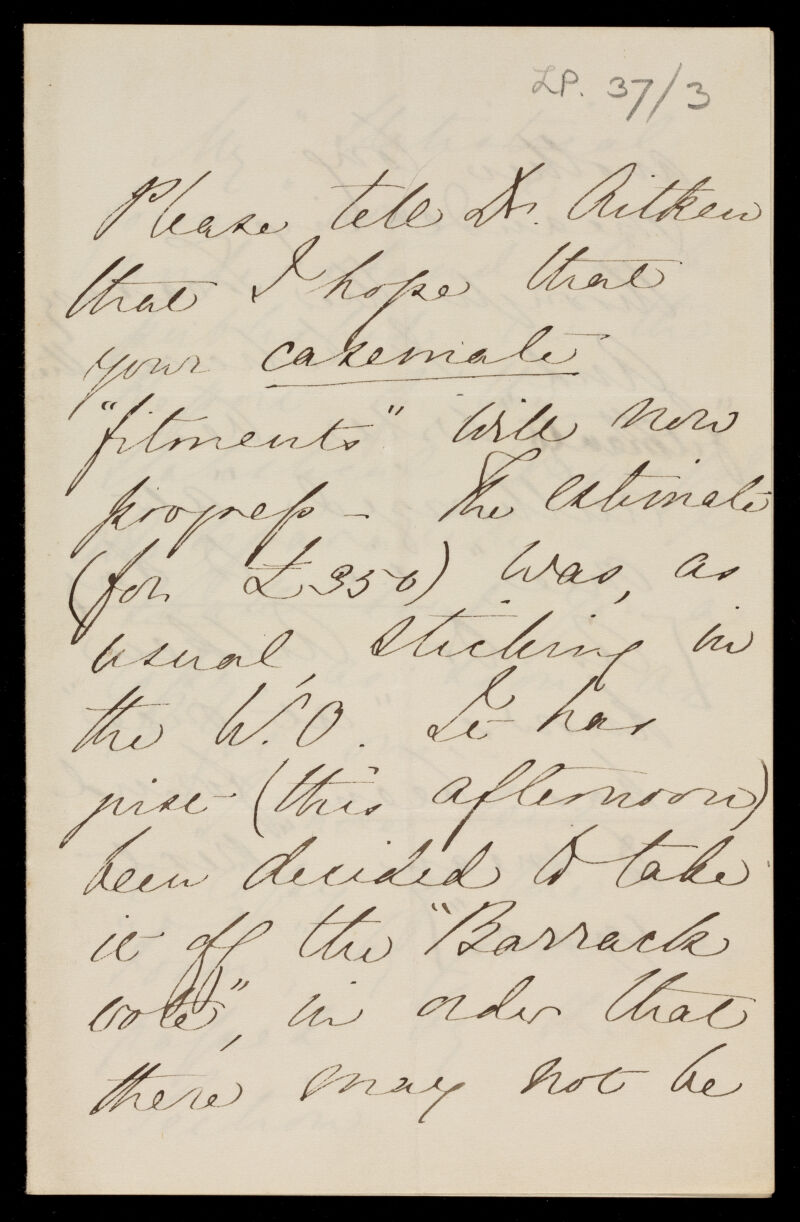 LP. 37/3
Please tell Dr. Aitken
that I hope that
your casemate
"fitments" will now
progress - The estimate
(for £350) was, as
usual, sticking in
the W.O. It has
just (this afternoon)
been decided to take
it off the "Barrack
vote", in order that
there may not be